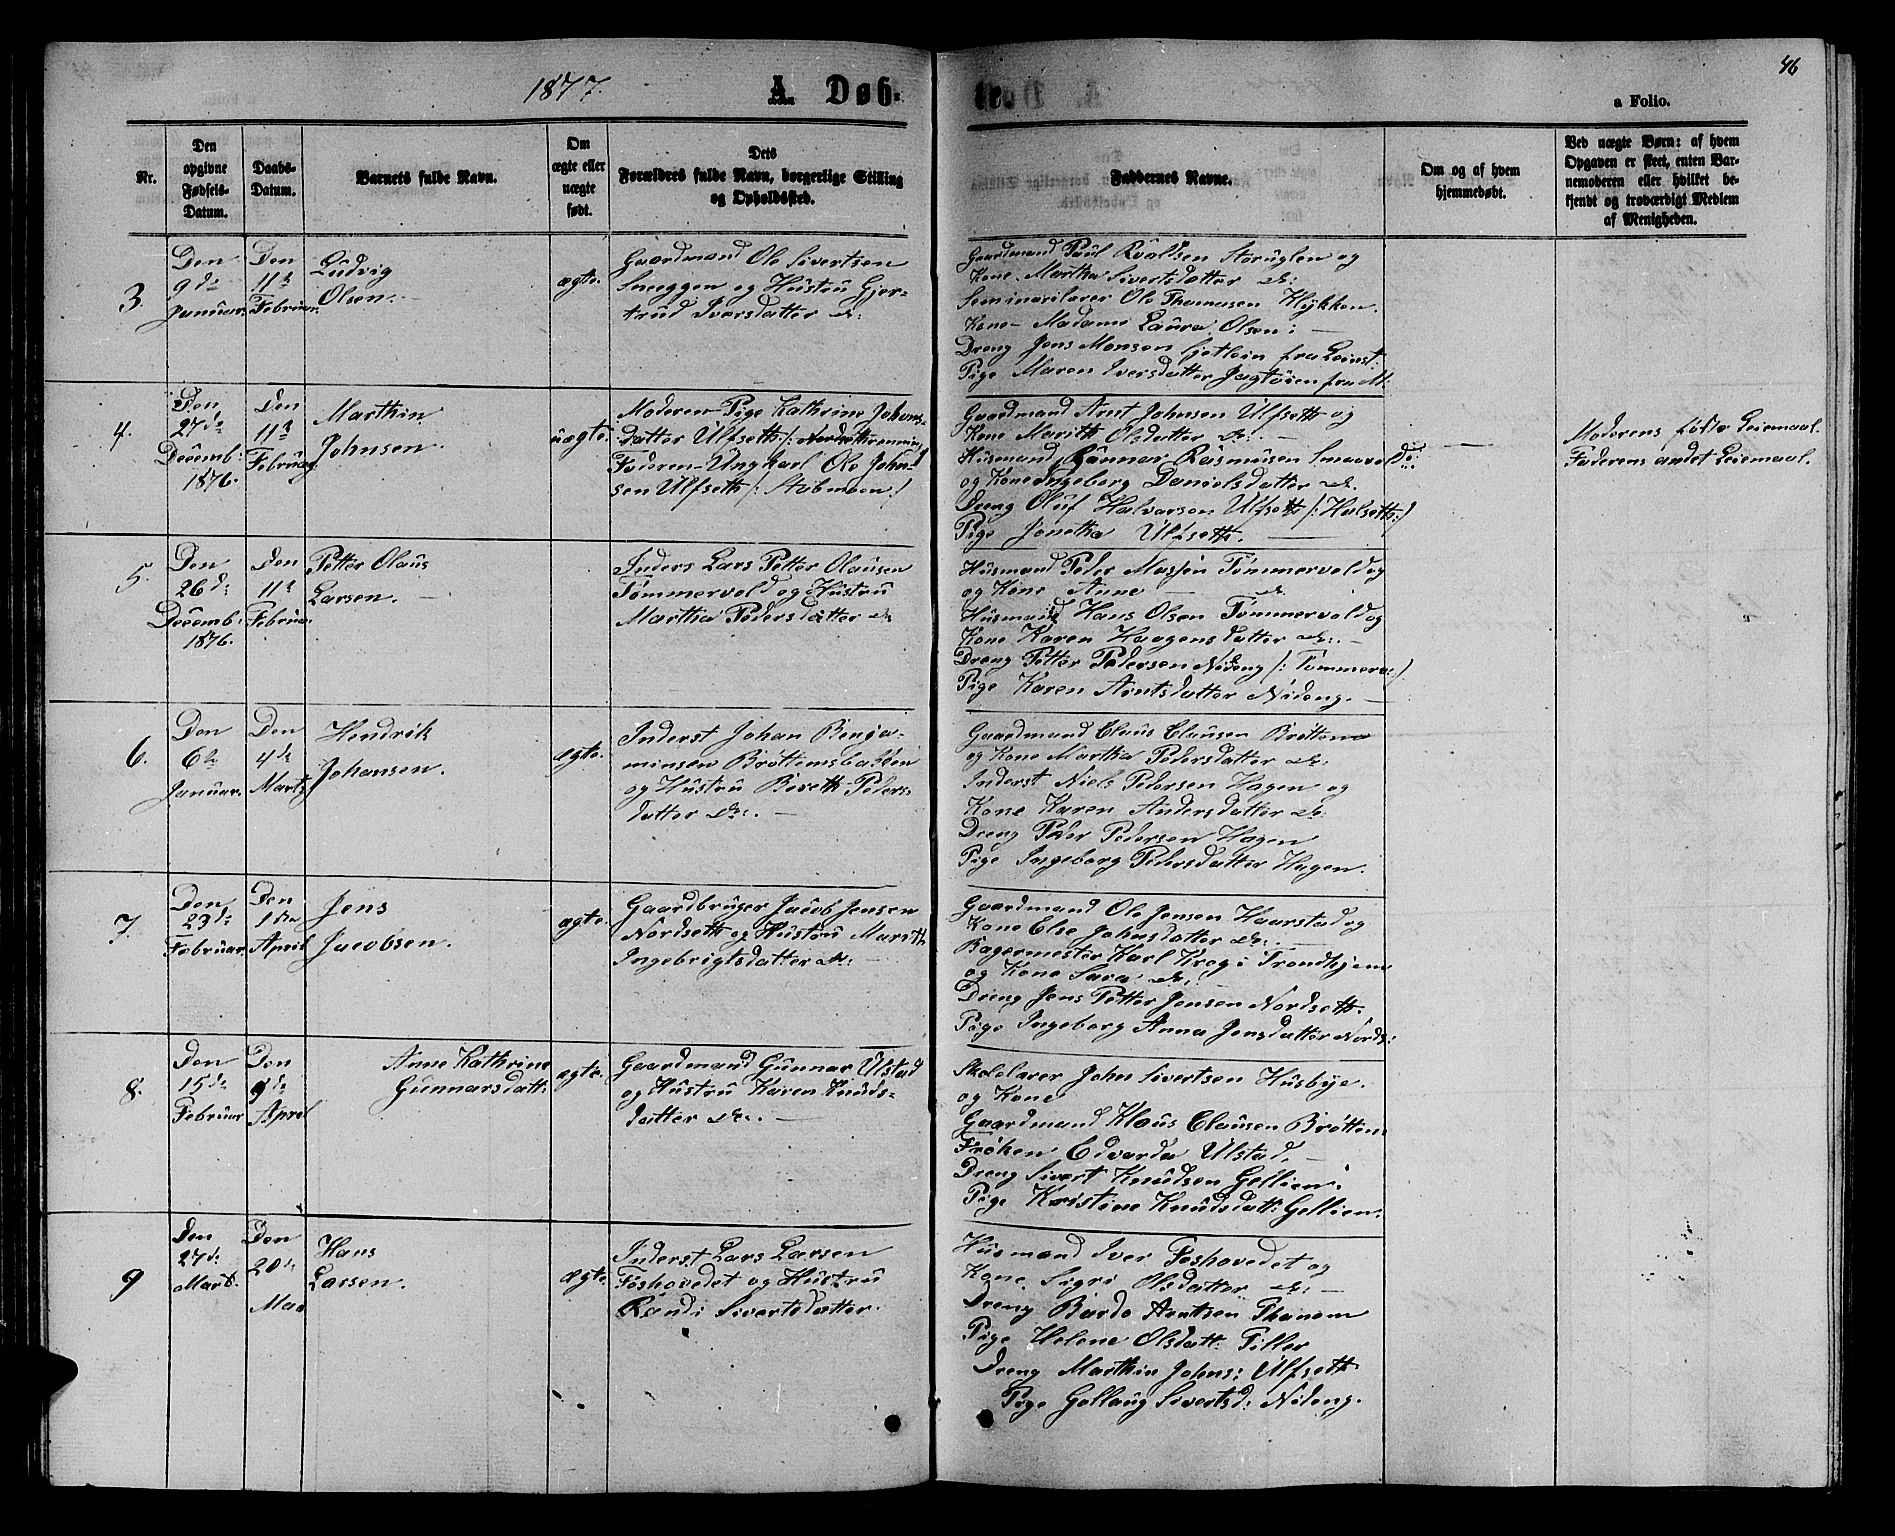 1877.
A. Døb-
te.
46
a Folio.
Nr.
Den
opgivne
Fødsels-
Datum.
Daabs-
Datum.
Barnets fulde Navn.
Om
ægte eller
uægte
født.
Dets
Forældres fulde Navn, borgerlige Stilling
og Opholdssted.
Faddernes Navne.
Om og af hvem
hjemmedøbt.
Ved uægte Børn: af hvem
Opgaven er skeet, enten Bar-
nemoderen eller hvilket be-
kjendt og troværdigt Medlem
af Menigheden.
3.
Den
9de
Januar.
Den
11te
Februar.
Ludvig
Olsen.
ægte.
Gaardmand Ole Sivertsen
Sneeggen og Hustru Gjer-
trud Iversdatter do:
Gaardmand Paul Roaldsen Storuglen og
Kone Martha Sivertsdatter do:
Seminarilærer Ole Thomasen Klykken.
Kone- Madame Laura Olsen:
Dreng Jens Monsen Gjetlein fra Leinst.
Pige Maren Iversdatter Jagtøien fra M.
4.
Den
27de
Decemb:
1876.
Den
11te
Februar
Marthin
Johnsen.
uægte.
Moderen- Pige Kathrine Johans-
datter Ulfseth /: Nordsethrønning
Faderen- Ungkarl Ole John-
sen Ulfseth /: Stubmoen:/
Gaardmand Arnt Johnsen Ulfseth og
Kone Marith Olsdatter do:
Husmand Gunnar Rasmusen Smaavold
og Kone Ingeborg Danielsdatter do.
Dreng Oluf Halvarsen Ulfseth /: Halseth:/
Pige Jonetha Ulfseth.
Moderens første Leiemaal.
Faderens andet Leiemaal.
5.
Den
26de
Decemb:
1876.
Den
11te
Februar.
Petter Olaus
Larsen.
Inders Lars Petter Olausen
Tømmervold og Hustru
Martha Pedersdatter do
Husmand Peder Masjen Tømmervold og
og Kone Anne do
Husmand Hans Olsen Tømmervold og
Kone Karen Haagensdatter do:
Dreng Petter Pedersen Nideng /: Tømmervo:/
Pige Karen Arntsdatter Nideng.
6.
Den
6te
Januar.
Den
4de
Marts
Hendrik
Johansen.
ægte.
Inderst Johan Benja-
minsen Brøttemsbakken
og Hustru Bereth Peders-
datter do:
Gaardmand Claus Clausen Brøttem
og Kone Martha Pedersdatter do:
Inderst Niels Pedersen Hagen og
Kone Karen Andersdatter do:
Dreng Peder Pedersen Hagen
Pige Ingeborg Pedersdatter Hagen.
7.
Den
23de
Februar.
Den
1ste
April
Jens
Jacobsen.
ægte.
Gaardbruger Jacob Jensen
Nordseth og Hustru Marith
Ingebrigtsdatter do:
Gaardmand Ole Jensen Haarstad og
Kone Else Johnsdatter do:
Bagermester Karl Krog i Trondhjem
og Kone Sara do:
Dreng Jens Petter Jensen Nordseth.
Pige Ingeborg Anna Jensdatter Nords:
8.
Den
15de
Februar
Den
9de
April
Anne Kathrine
Gunnarsdatt:
ægte.
Gaardmand Gunnar Ulstad
og Hustru Karen Knuds-
datter do:
Skolelærer John Sivertsen Husbye.
og Kone
Gaardmand Klaus Clausen Brøttem
Frøken Edvarda Ulstad.
Dreng Sivert Knudsen Gellien.
Pige Kristine Knudsdatt: Gellien.
9
Den
27de
Mart.
Den
20de
Mai
Hans
Larsen.
ægte.
Inderst Lars Larsen
Foshovedet og Hustru
Randi Sivertsdatter.
Husmand Iver Foshovedet og
Kone Sigri Olsdatter do:
Dreng Bardo Arntsen Thanem
Pige Helene Olsdatt: Tiller
Dreng Marthin Johns: Ulfseth
Pige Gollaug Sivertsd: Nideng.